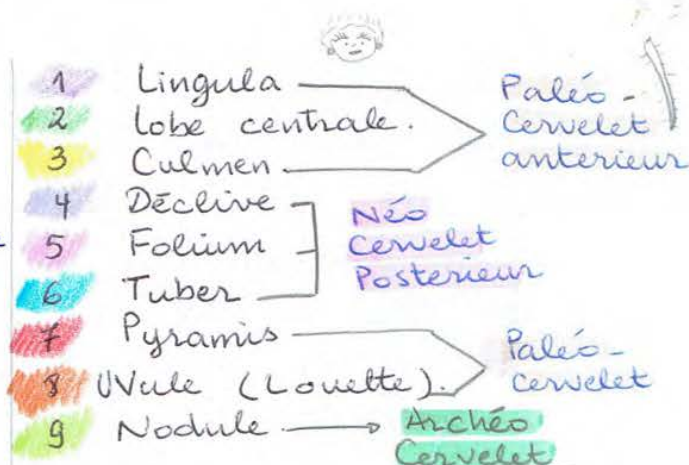 1 Lingula
2 Lobe centrale.
3 Culmen
Paléo-
Cervelet
anterieur
4 Déclive
5 Folium
6 Tuber
Néo
Cervelet
Posterieur
7 Pyramis
8 UVule (Louette).
Paléo-
cervelet
9 Nodule → Archéo
Cervelet